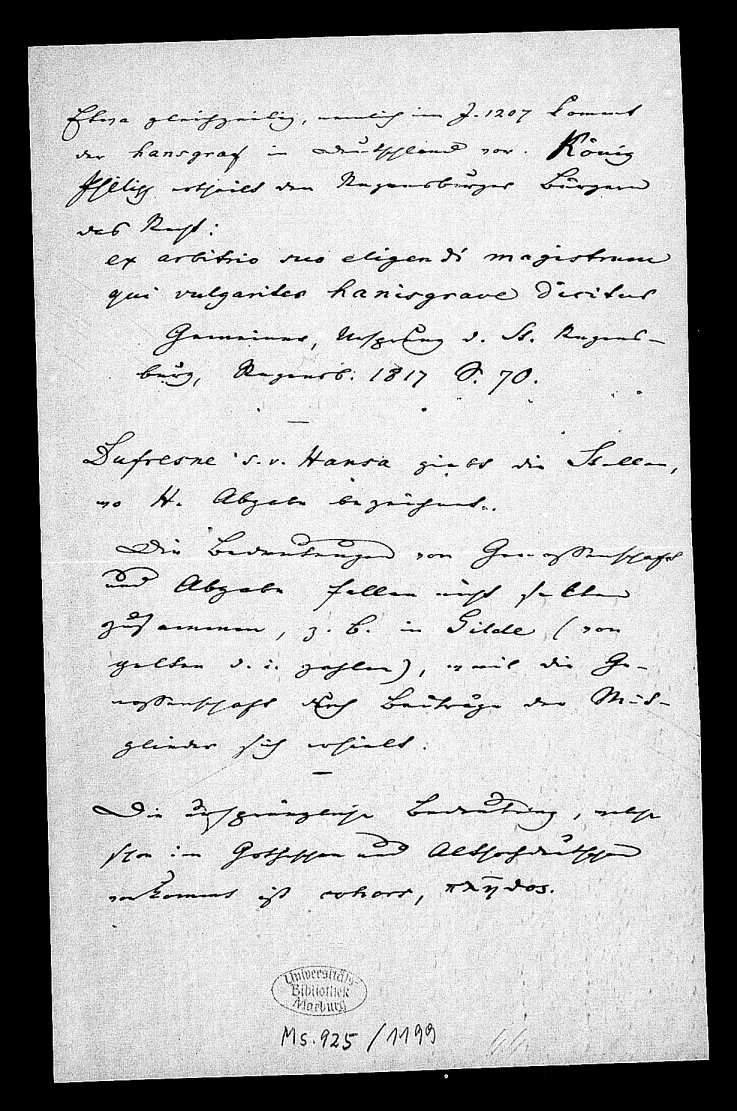 Etwa gleichzeitig, nemlich im J. 1207 kommt
der hansgraf in Deutschland vor. König
Philipp ertheilt den Regensburger Bürgern
das Recht:
ex arbitrio suo eligendi magistrum
qui vulgariter hansgrave dicitur
Gemeiner, Ursprung d. St. Regens-
burg, Regensb. 1817 S. 70.
—
Dufresne s. v. Hansa giebt die Stellen,
wo H. Abgabe bezeichnet.
Die Bedeutungen von Genossenschaft
und Abgabe fallen nicht selten
zusammen, z. B. in Gilde (von
gelten d. i. zahlen), weil die Ge-
nossenschaft durch Beiträge der Mit-
glieder sich erhielt.
—
Die ursprüngliche Bedeutung, welche
schon im Gothischen und Althochdeutschen
vorkommt ist cohors, πλῆθος.
Universitäts
Bibliothek
Marburg
Ms. 925/1199